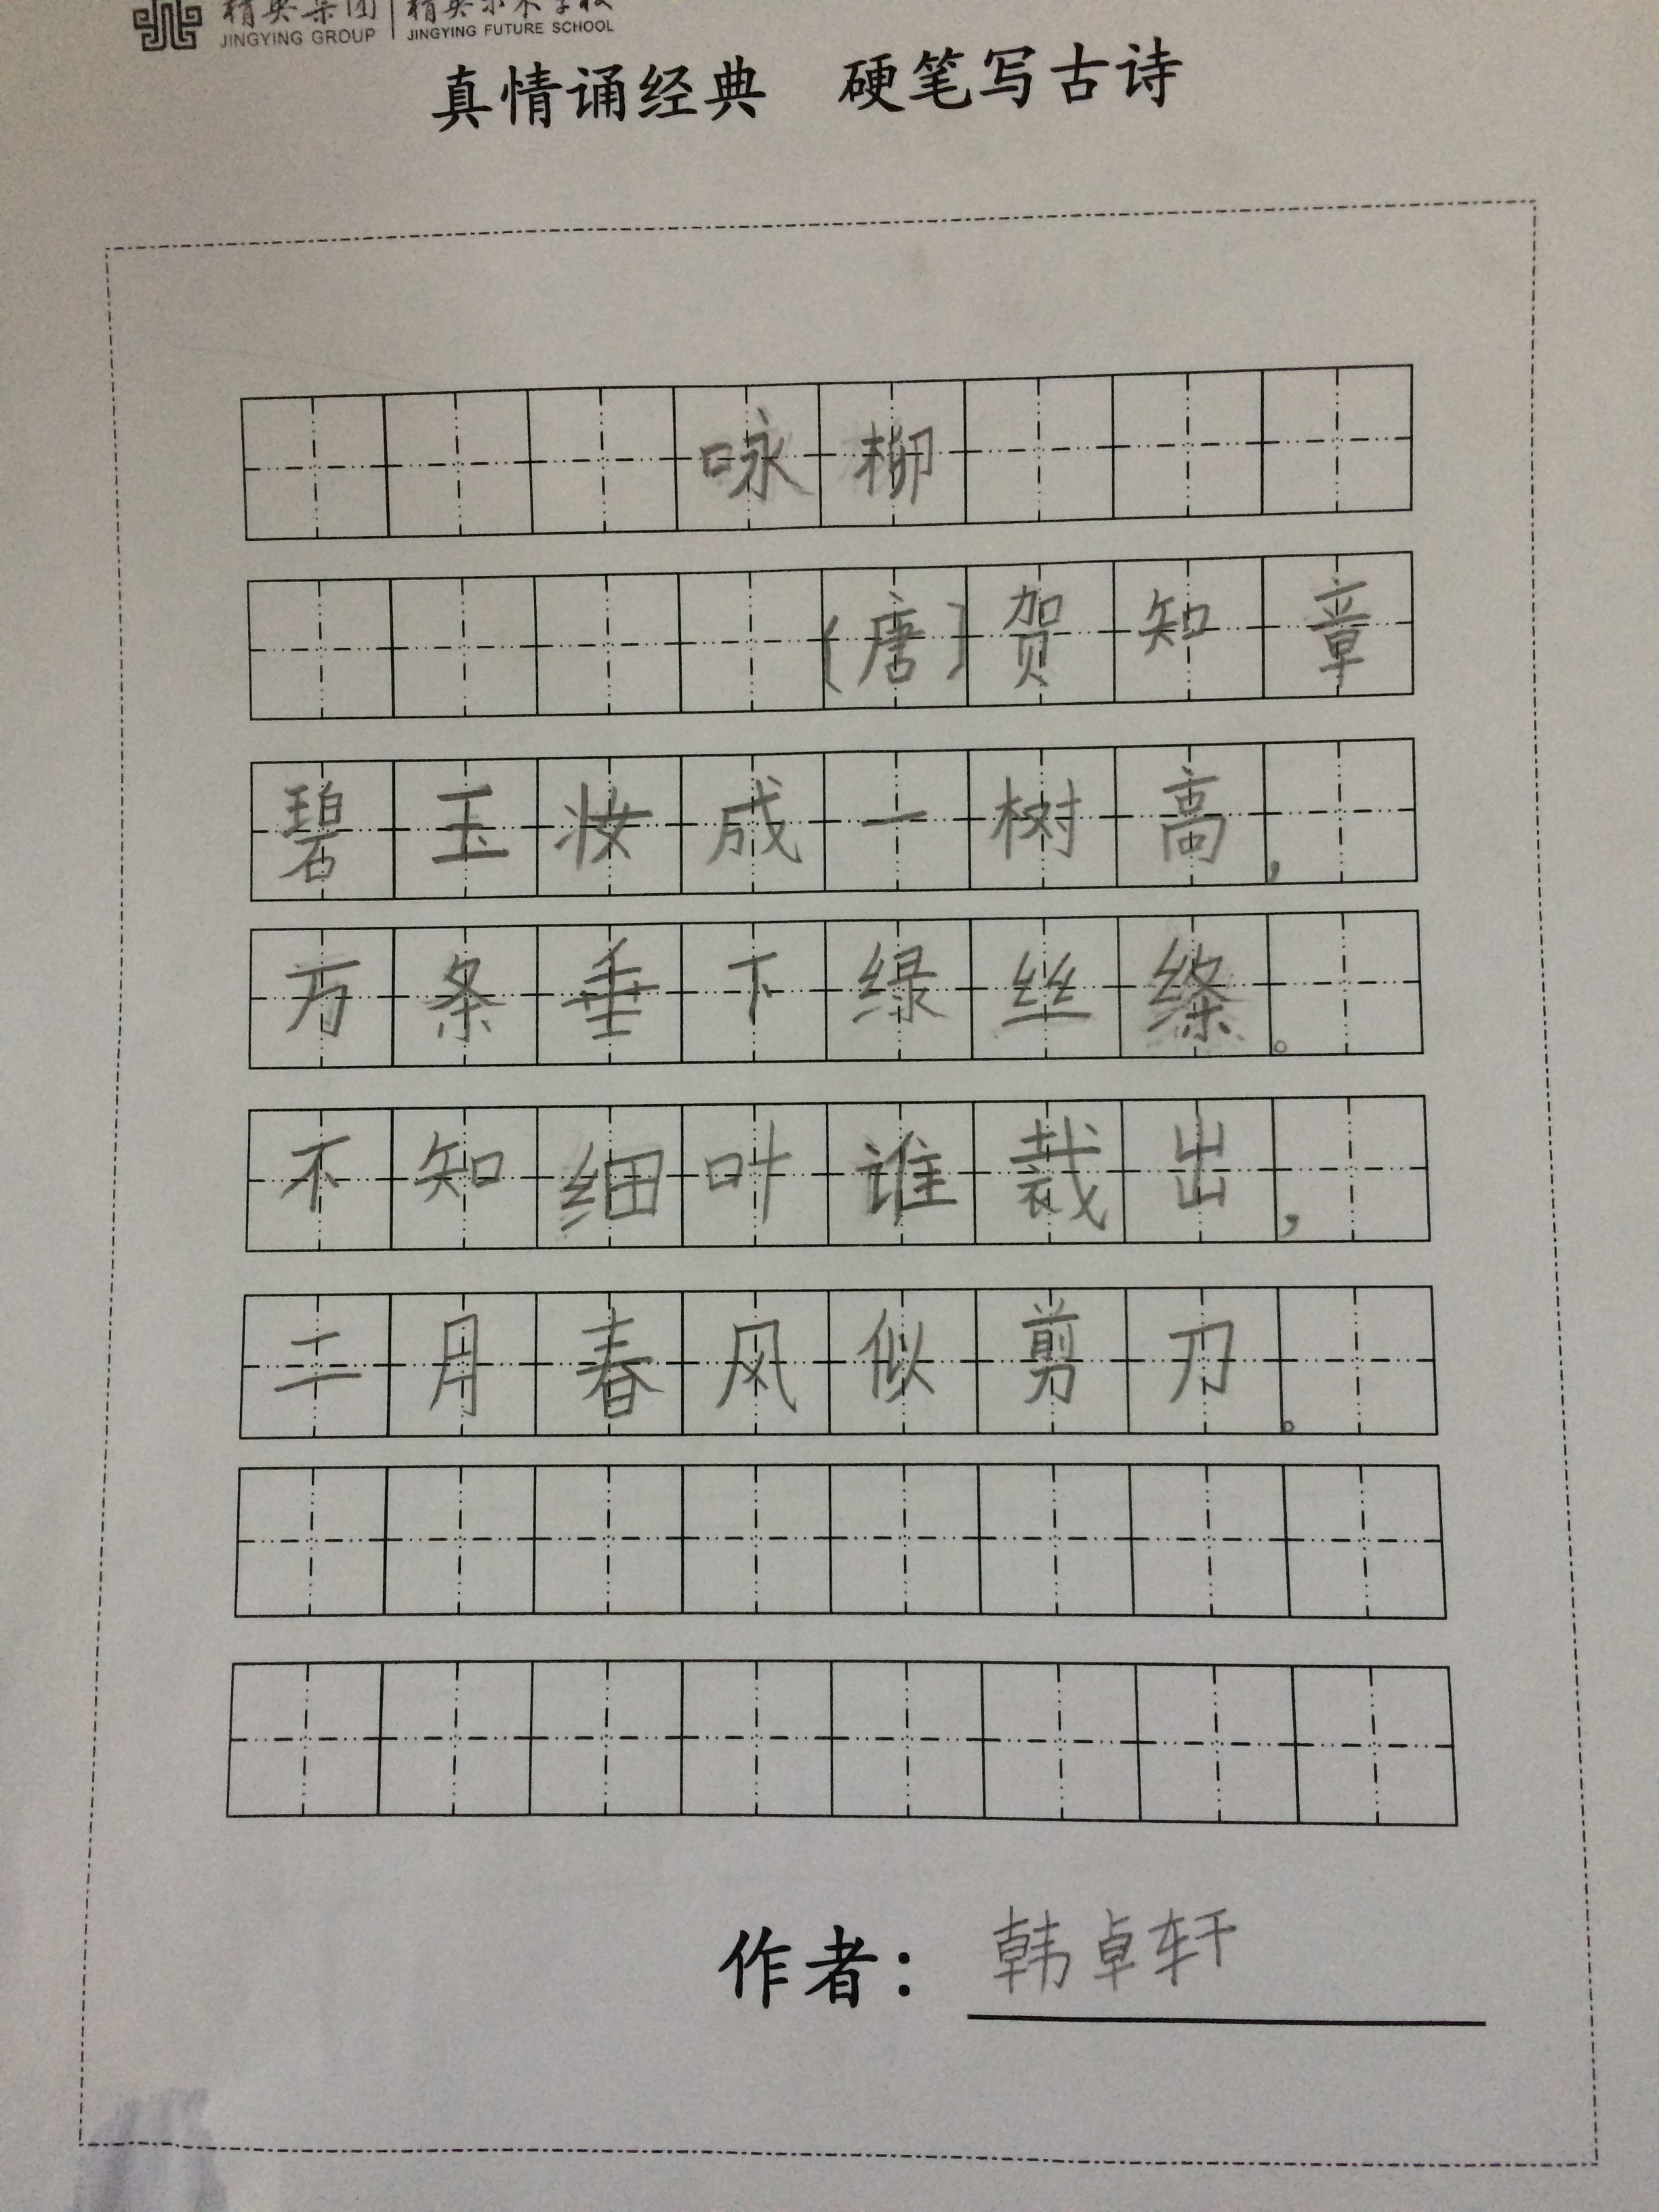 精英集团 精英未来学校
JINGYING GROUP JINGYING FUTURE SCHOOL
真情诵经典 硬笔写古诗
咏柳
[唐]贺知章
碧玉妆成一树高,
万条垂下绿丝绦。
不知细叶谁裁出,
二月春风似剪刀。
作者: 韩卓轩